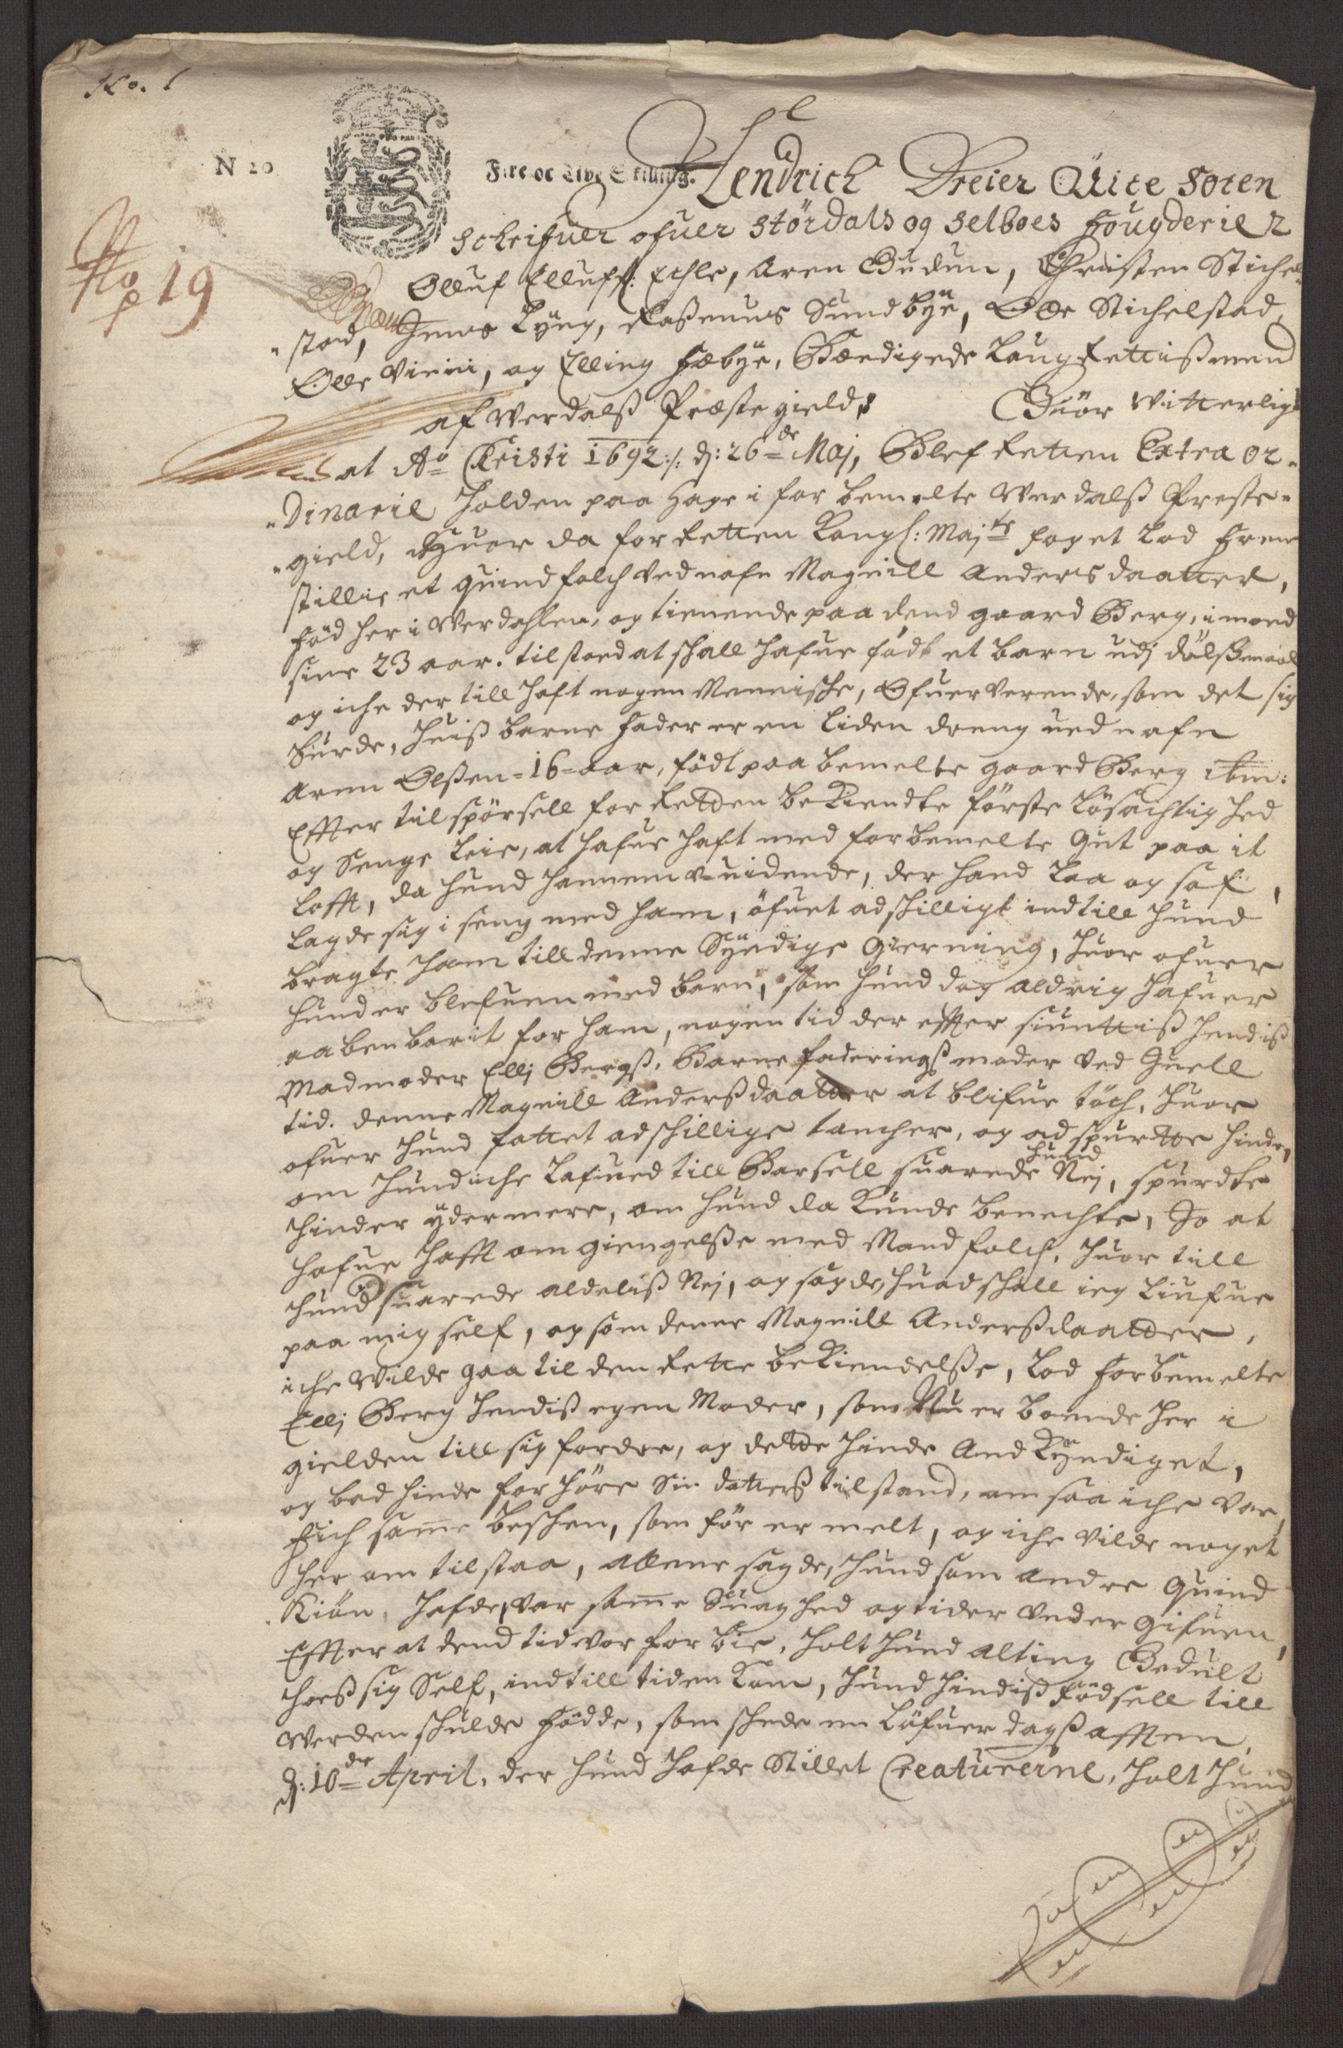 No. 1
N 20
Fire oc Tive Skilling.
No 19
Hendrich Dreier Üice Soren
Schrifuer ofuer Stördals og Selboes Fougderie
Olluf Ellufs: Echle, Aren Gudun, Christen Stichel-
stad, Jens Lyng, Rasmus Sundbye, Olle Stichelstad,
Olle Vinni, og Elling Hæbye, Bædigede Laug Rettissmend
af Werdalss Præstegield Giör Witterligt
at Ao Christi 1692 /: d: 26de Maj, Blef Retten Extra or-
dinarie holden paa Hage i for bemelte Werdalss Preste-
gield, Huor da for Retten Kongl: Majts foget Lod Frem
stillis et quindfolch ved nafn Magnill Andersdaatter,
föd her i Werdahlen, og tienende paa dend gaard Berg, imod
sine 23 aar. tilstoed at schall hafue födt et barn udj dölssmaal
og iche der till haft nogen Mennische, Ofuerverende, som det sig
burde, huiss barne fader er en liden dreng ved nafn
Aren Olssen 16 aar, födt paa bemelte gaard Berg
Effter tilspörsell for Retten bekiendte förste Lösachtighed
og Senge Leie, at hafue haft med forbemelte Gut paa it
Lofft, da hund hannem uuidende, der hand Laa og sof,
lagde sig i seng med ham, öfuet adschilligt indtill hund
bragte ham till denne Syndige gierning, huor ofuer
hund er blefuen med barn, som hund dog aldrig hafuer
aabenbarit for ham, nogen tid der effter siuntiss hendiss
Madmoder Ellj Bergss, Barnefaderings moder ved Juell
tid. denne Magnill Anderssdaatter at blifue töch, huor
ofuer hund fattet adschillige tancher, og adspurtte hinde,
om hund iche Lafued till Barsell suarede hund Nej, spurdte
hinder ydermere, om hund da kunde benechte, Jo at
hafue hafft omgiengelsse med Mandfolch, huor till
hund suarede aldeliss Nej, og sagde, huad schall ieg liufue
paa mig self, og som denne Magnill Anderssdaatter,
iche Wilde gaa til den rette bekiendelsse, Lod forbemelte
Ellj Berg hendiss egen Moder, som Nu er boende her i
gielden till sig fordre, og dette hinde And Kyndiget,
og bad hinde forhöre sin datterss tilstand, om saa iche var,
fich samme beschen, som för er melt, og iche vilde noget
her om tilstaa, Allene sagde, hund som andre Quind
Kiön, hafde, var samme Suaghed og tider under gifuen,
Effter at dend tid var for bie, holt hund alting Gedult
hoess sig Self, indtill tiden kom, hund hindiss födsell till
Werden schulde födde, som schede en Löfuer dagss afften,
d: 10de April, der hund hafde Stillet Creaturerne, holt hund